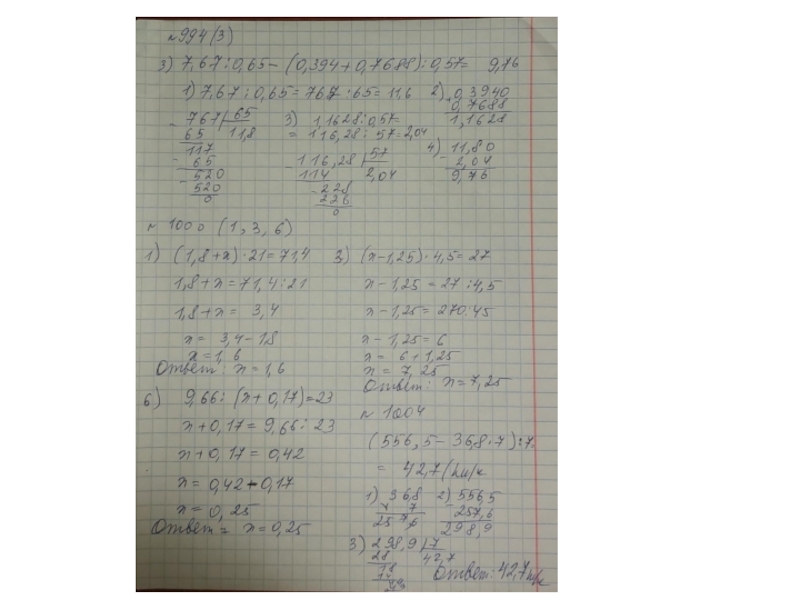 №994(3)
3) 7,67:0,65-(0,394+0,7688):0,57= 9,76
1) 7,67:0,65=767:65=11,6 2) 0,3940
0,7688
1,1628
767|65
65 11,8
117
65
520
520
0
3) 1,1628:0,57=
= 116,28:57=2,04
116,28|57
114 2,04
228
228
0
4) 11,80
- 2,04
9,76
№ 1000 (1,3,6)
1) (1,8+x)·21=71,4
1,8+x=71,4:21
1,8+x= 3,4
x= 3,4-1,8
x=1,6
Ответ: x=1,6
3) (x-1,25)·4,5=27
x-1,25=27:4,5
x-1,25=270:45
x-1,25=6
x= 6+1,25
x= 7,25
Ответ: x=7,25
6) 9,66:(x+0,17)=23
x+0,17=9,66:23
x+0,17=0,42
x=0,42-0,17
x=0,25
Ответ: x=0,25
№ 1004
(556,5-36,8·7):7=
= 42,7(км/ч
1) 36,8
x 7
257,6
2) 556,5
- 257,6
298,9
3) 298,9|7
28 42,7
18
Ответ: 42,7км/ч